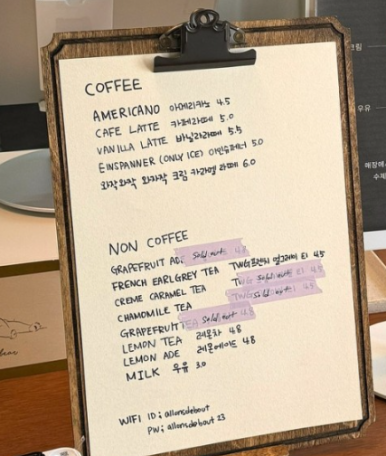 COFFEE
AMERICANO 아메리카노 4.5
CAFE LATTE 카페라떼 5.0
VANILLA LATTE 바닐라라떼 5.5
EINSPANNER (ONLY ICE) 아인슈페너 5.0
와작와작 와자작 크림 카라멜 라떼 6.0
NON COFFEE
GRAPEFRUIT ADE Sold out 4.8
FRENCH EARLGREY TEA TWG 프렌치 얼그레이 티 4.5
CREME CARAMEL TEA TWG Sold out 티 4.5
CHAMOMILE TEA TWG Sold out 티 4.5
GRAPEFRUIT TEA Sold out 4.8
LEMON TEA 레몬차 4.8
LEMON ADE 레몬에이드 4.8
MILK 우유 3.0
WIFI ID; allonsdebout
PW; allonsdebout23
우유
매장에서